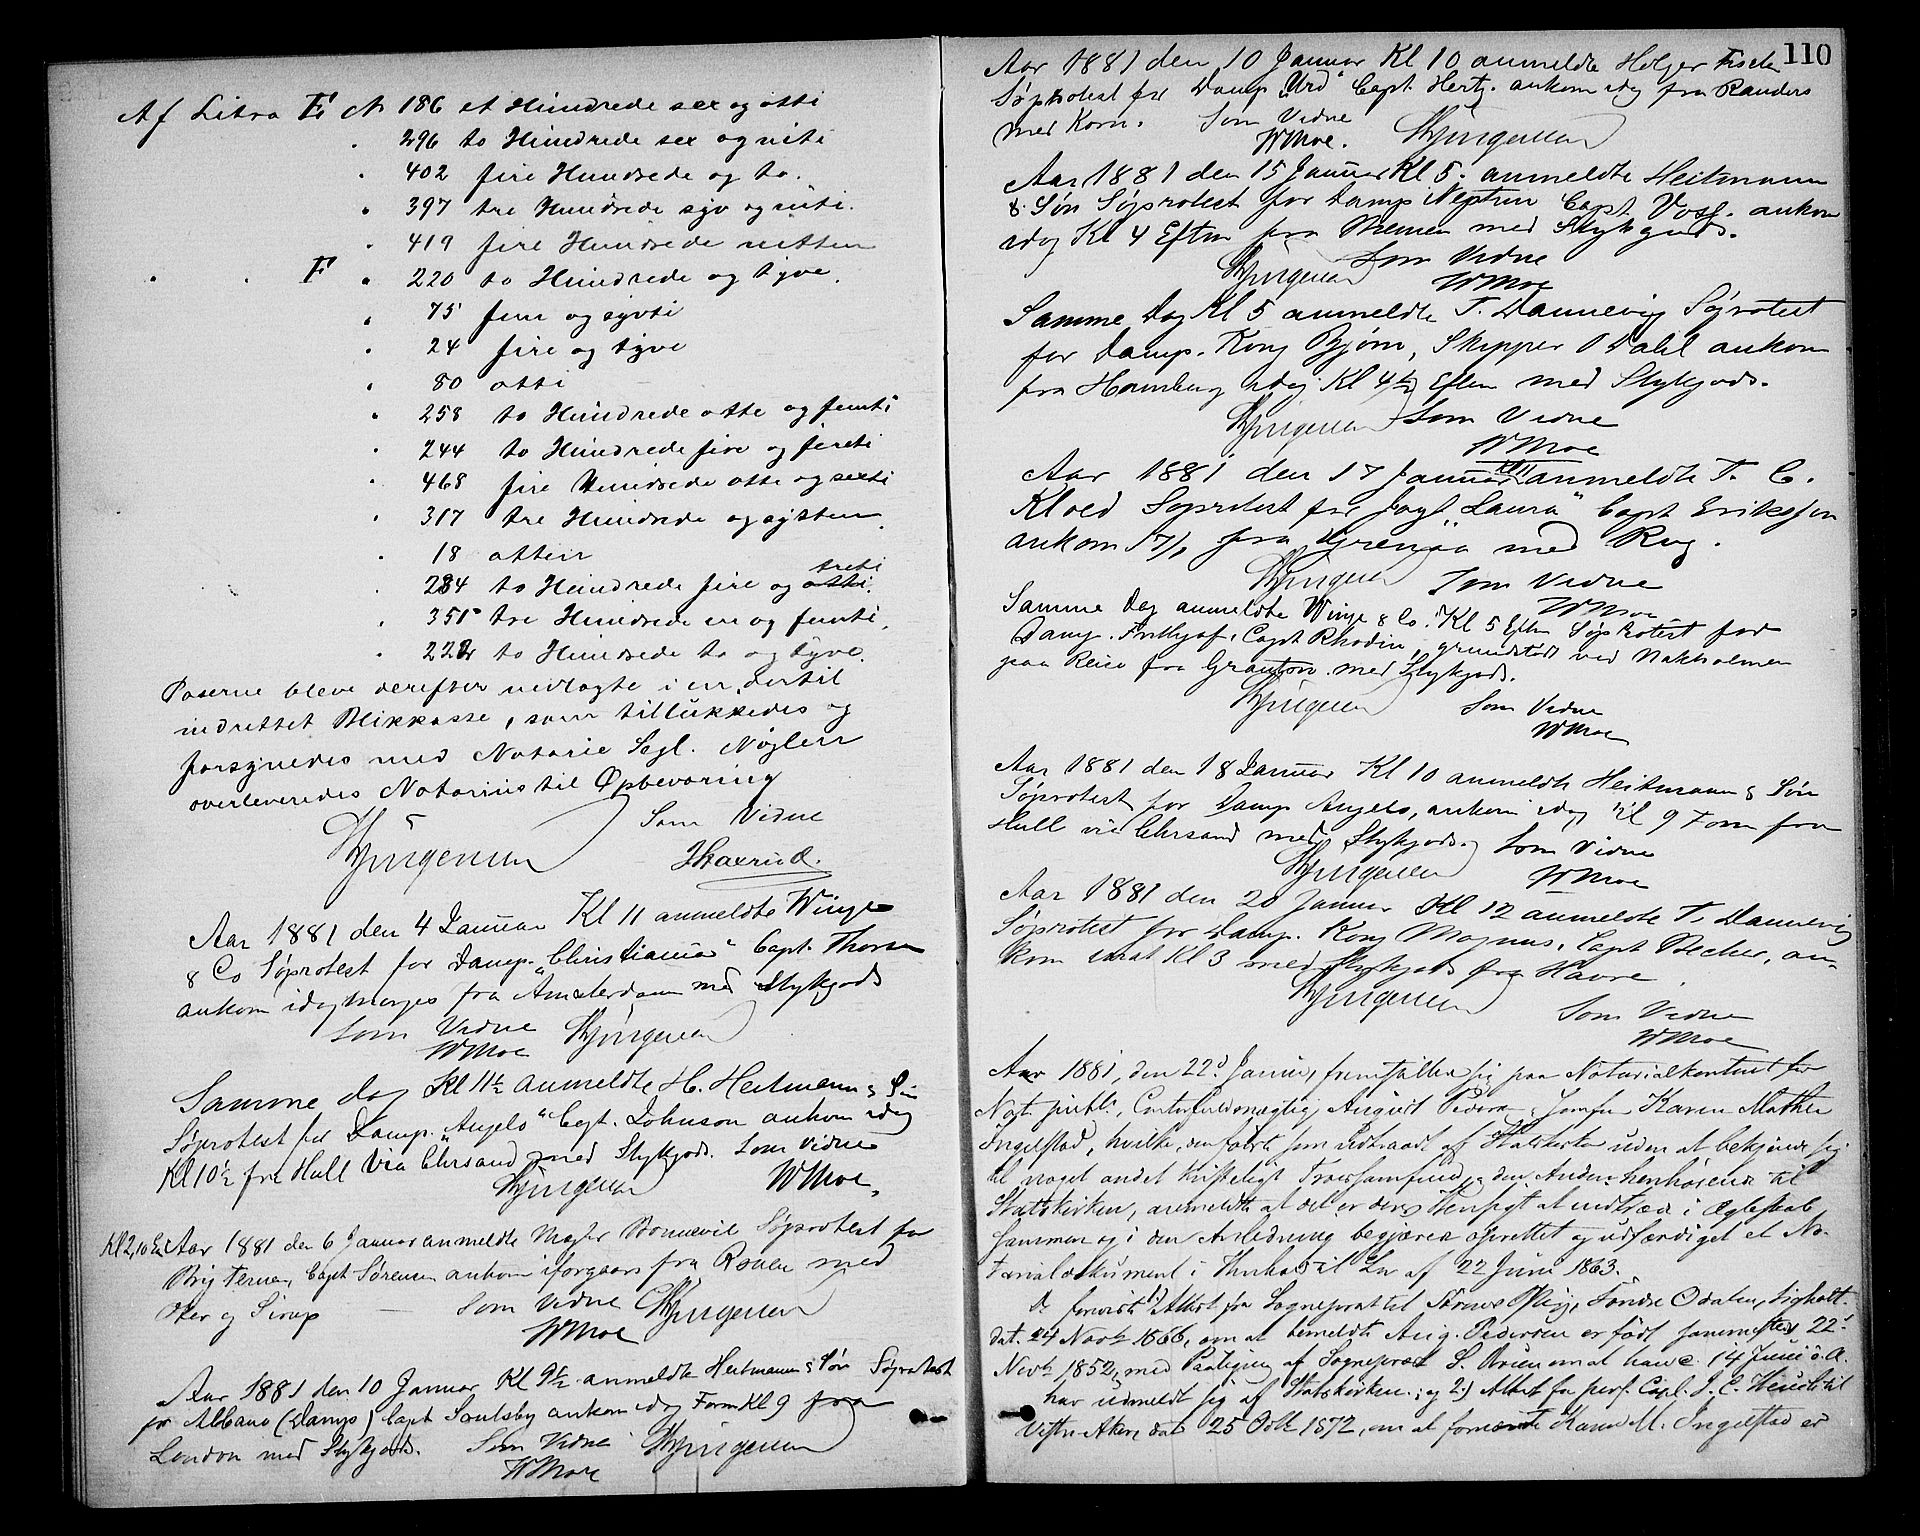 Af Litra E. N 186 et Hundrede sex og otti
" 296 to Hundrede sex og niti
" 402 fire Hundrede og to.
" 397 tre Hundrede syv og niti.
" 419 fire Hundrede nitten
" " F " 220 to Hundrede og tyve.
" 75 fem og sytti
" 24 fire og tyve
" 80 otti
" 258 to Hundrede otte og femti
" 244 to Hundrede fire og firti
" 468 fire Hundrede otte og sexti
" 317 tre Hundrede og sytten
" 18 atten
treti
" 234 to Hundrede fire og otti.
" 351 tre Hundrede en og femti.
" 222 to Hundrede to og tyve.
Poserne bleve derefter nedlagte i en dertil
indrettet Blikkasse, som tillukkedes og
forsynedes med Notarie Segl. Nøglen
overleveredes Notarius til Opbevaring
Som Vidne
Aar 1881 den 4 Januar Kl 11 anmeldte Winge
& Co Søprotest for Damp. "Christiania" Capt. Thorsen
ankom idag morges fra Amsterdam med Stykgods
Som Vidne
WMoe
Samme dag Kl 11½ anmeldte H. Heitmann & Søn
Søprotest for Damp. "Angelo" Capt. Johnson ankom idag
Kl 10½ fra Hull via Chrsand med Stykgods. Som Vidne
WMoe.
Aar 1881 den 6 Januar anmeldte Mægler Bonnevie Søprotest for
Brig Terne, Capt Sørensen ankom iforgaars fra Rouen med
og Sirup Som Vidne
WMoe
Aar 1881 den 10 Januar Kl 9½ anmeldte Heitmann & Søn Søprotest
for Albano (Damps) Capt Soulsby ankom idag Form Kl 9 fra
London med Stykgods. Som Vidne
WMoe
110
Aar 1881 den 10 Januar Kl 10 anmeldte Holger
Søprotest for Damp "Urd" Capt. Hertz. ankom idag fra Randers
med Korn. Som Vidne
WMoe.
Aar 1881 den 15 Januar Kl 5. anmeldte Heitmann
& Søn Søprotest for Damp Neptun Capt Voss. ankom
idag Kl 4 Eftm fra Bremen med Stykgods.
Som Vidne
WMoe
Samme Dag Kl 5 anmeldte T. Dannevig Søprotest
for Damp. Kong Bjørn, Skipper Dahl ankom
fra Hamburg idag Kl 4½ Eftm med Stykgods.
Som Vidne
WMoe
Kl 11
Aar 1881 den 17 Januar anmeldte T. C.
Kloed Søprotest for Jagt "Laura" Capt Eriksson
ankom 17/1 fra Grenaa med Rug.
Som Vidne
WMoe
Samme Dag anmeldte Winge & Co. Kl 5 Eftm Søprotest for
Damp. Frithjof, Capt Rhodin, grundstødt ved Nakholmen
paa Reise fra Granton med Stykgods.
Som Vidne
WMoe
Aar 1881 den 18 Januar Kl 10 anmeldte Heitmann & Søn
Søprotest for Damp Angelo, ankom idag Kl 9 Form fra
Hull via Chrsand med Stykgods. Som Vidne
WMoe
Aar 1881 den 20 Januar Kl 12 anmeldte T. Dannevig
Søprotest for Damp. Kong Magnus, Capt Becher, an-
kom inat Kl 3 med Stykgods fra Havre.
Som Vidne
WMoe
Aar 1881, den 22d Januar, fremstillede sig paa Notarialkontoret for
Not. publ., Contorfuldmægtig August Pedersen & Jomfru Karen Mathea
Ingelstad, hvilke, den første som udtraadt af Statskirken uden at bekjende sig
til noget andet kristeligt Troessamfund, den Anden henhørende til
Statskirken, anmeldte at det er deres Hensigt at indtræde i Ægteskab
sammen og i den Anledning begjærede oprettet og udfærdiget et No-
tarialdokument i Henhold til Lov af 22 Juni 1863.
De foreviste 1) Attest fra Sognepræst til Strøms Præstegj, Søndre Odalen,
dat. 24 Novb 1866, om at bemeldte Aug. Pedersen er født sammesteds 22d
Novb 1852, med Paategning af Sognepræst S. Bruun om at han d. 14 Juni d. A.
har udmeldt sig af Statskirken; og 2) Attest fra pers. Capl. J. C. Heuch til
Vestre Aker, dat 25 Octb 1872, om at fornævnte Karen M. Ingelstad er